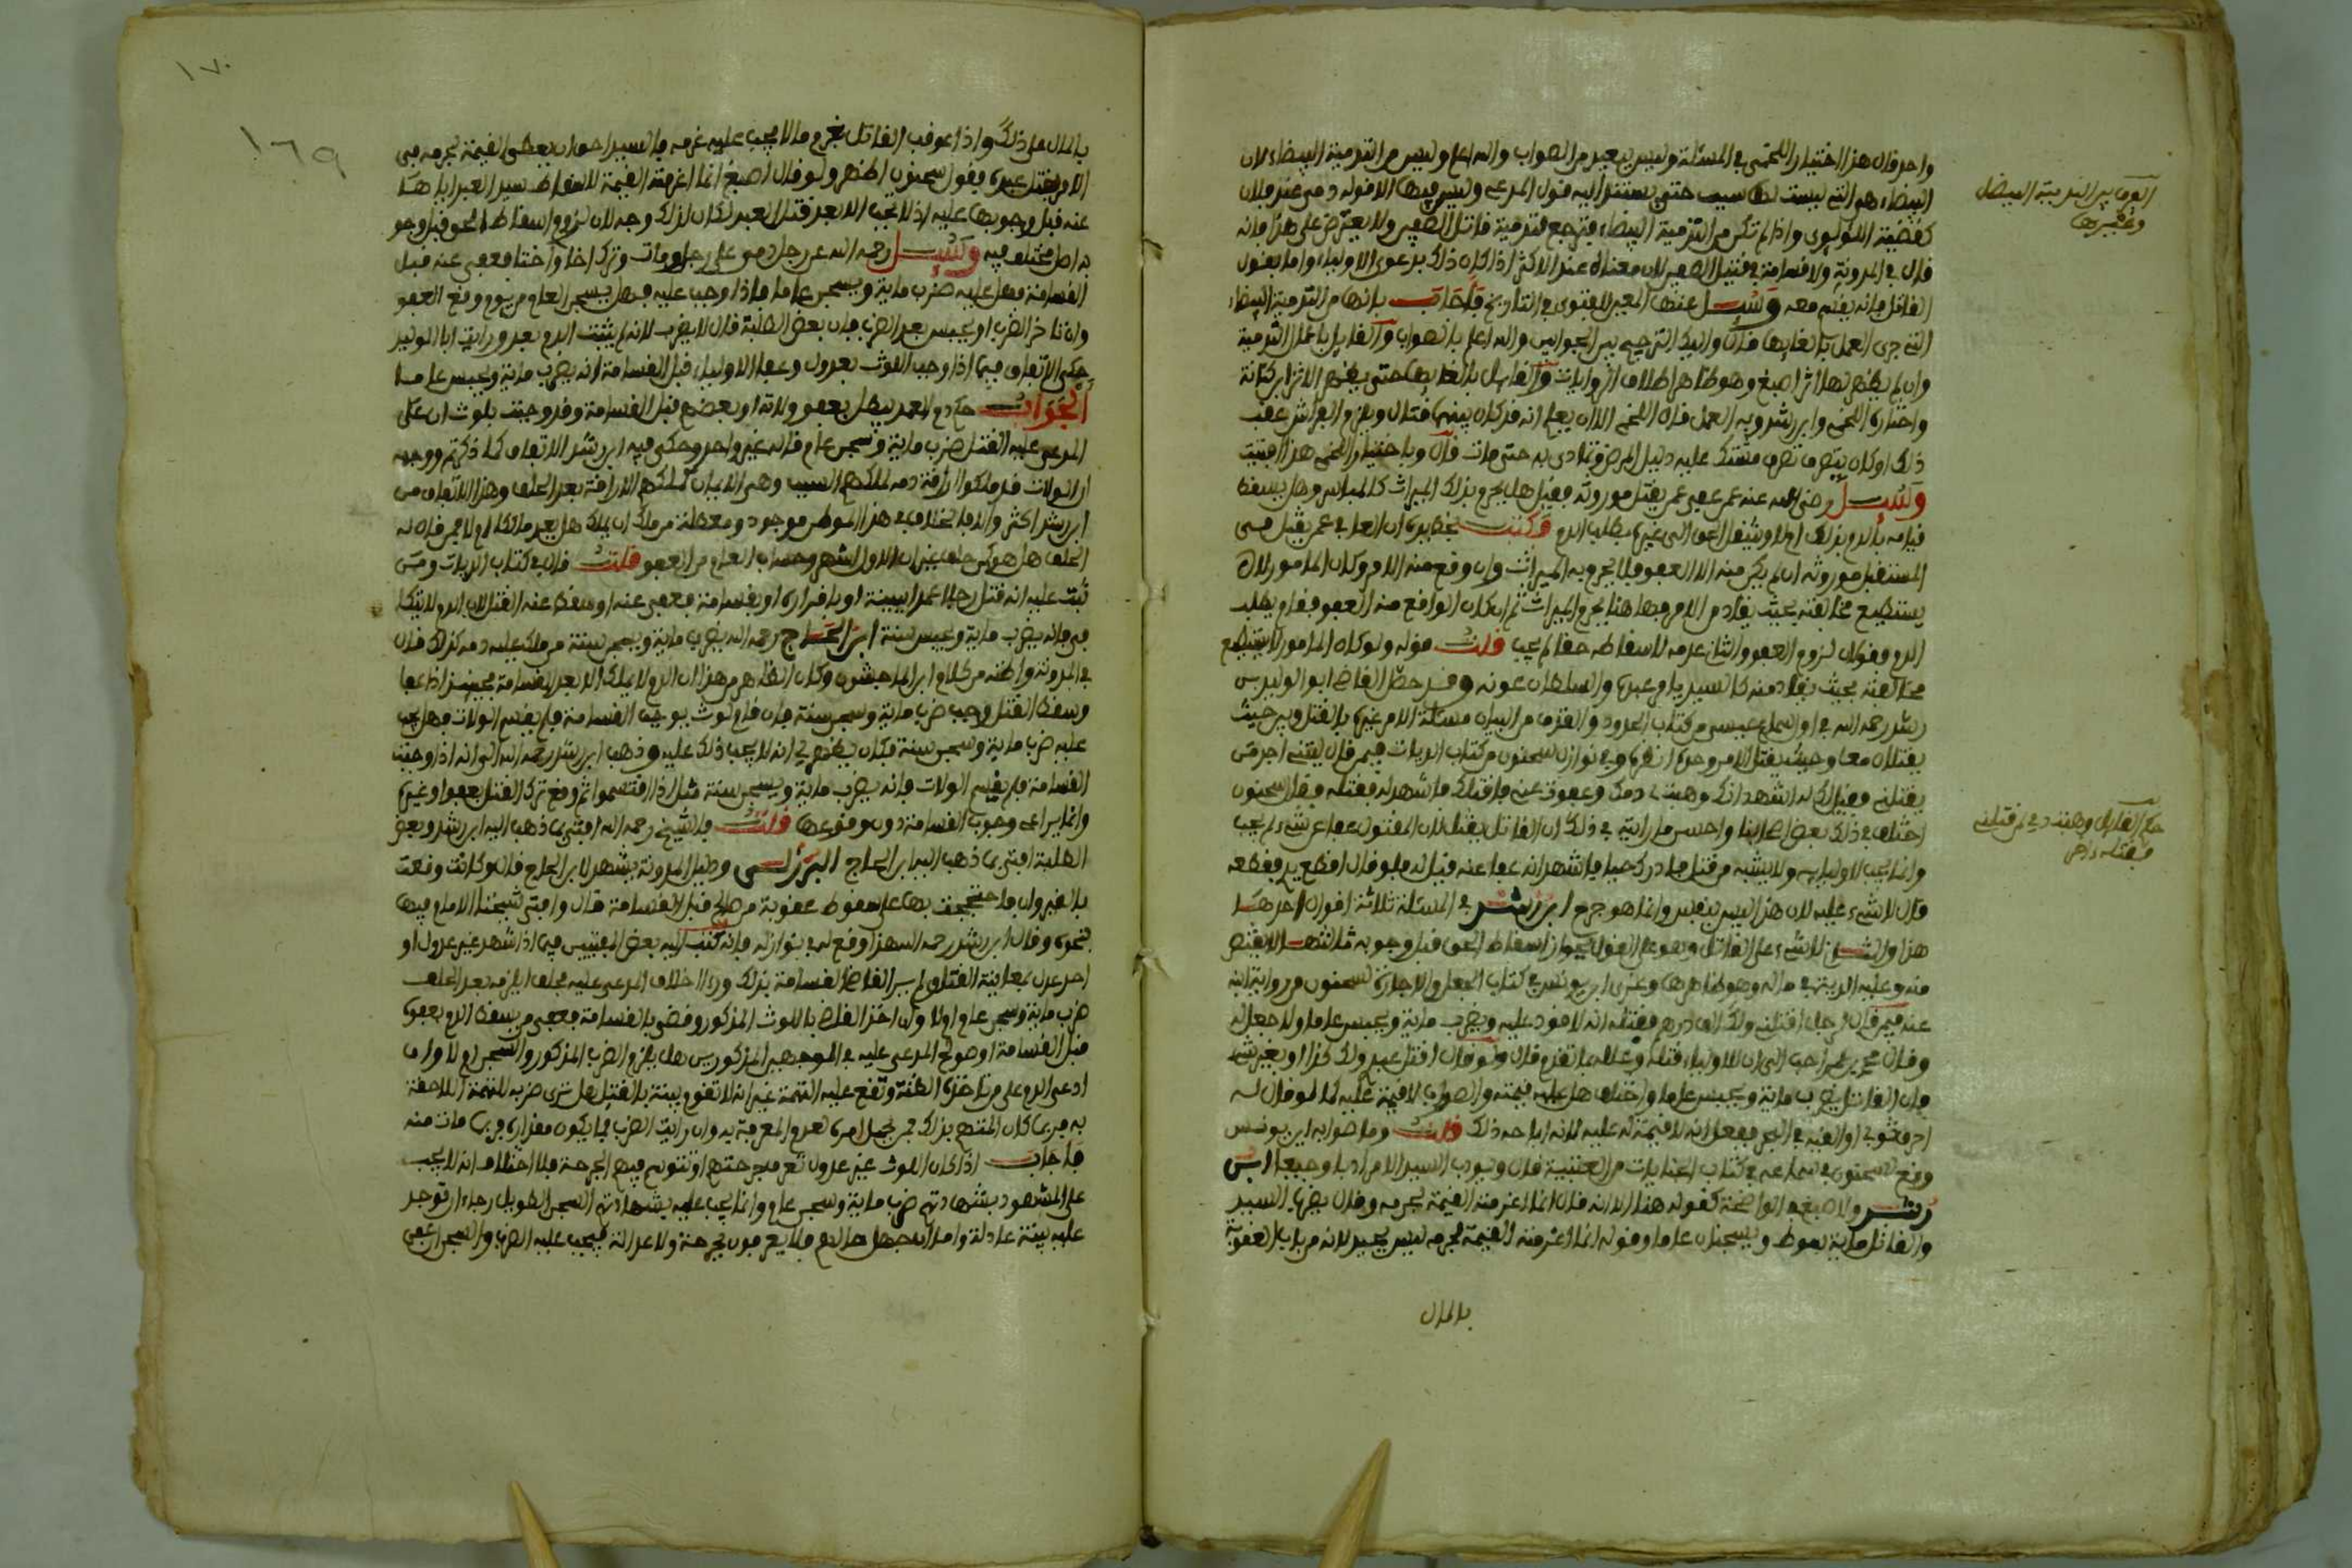 واحد قال هذا اختيار اللخمي في المسئلة وليس ببعيد من الصواب والله اعلم وليس من التدمية البيضاء لان
البيضاء هي التي ليست لها سبب حتى يستند اليه قول المدعي وليس فيها الا قوله دمي عند فلان
كقضية اللؤلؤي واذا لم تكن من التدمية البيضاء فترجع فتدمية قاتل الصغير ولا يعترض على هذا بانه
قال في المدونة ولا قسامة في قتيل الصغير لان معناه عند الاكثر اذا كان ذلك بدعوى الاولياء واما بقول
القاتل فانه يقسم معه وسئل عنها المعير للفتوى في التاريخ فاجاب بانها من التدمية البيضاء
التي جرى العمل بالغايها قال واليك الترجيح بين الجوابين والله اعلم بالصواب والقايل باعمال التدمية
وان لم يظهر لها اثر اصبغ وهو ظاهر اطلاق الروايات والقايل بالغايها حتى يظهر الاثر ابن كنانة
واختاره اللخمي وابن رشد وبه العمل قال اللخمي الا ان يعلم انه قد كان بينهما قتال ويلزم الفراش عقب
ذلك او كان يتصرف تصرف مشتك عليه دليل المرض وتمادى به حتى مات قال وباختيار اللخمي هذا افتيت
وسئل رضي الله عنه عمن عفى عمن يقتل موروثه فقيل هل يحرم بذلك الميراث كالمباشر وهل يسقط
قيامه بالدم بذلك ام لا وينتقل الحق الى غيره بطلب الدم فكتب بخط يده ان العافي عمن يقبل فسى
المستقبل موروثه ان لم يكن منه الا العفو فلا يحرم به الميراث وان وقع منه الامر وكان المامور لا
يستطيع مخالفته بحيث يقاد من الامر فها هنا يحرم الميراث ثم ان كان الواقع منه العفو فقام يطلب
الدم فقولان لزوم العفو والثاني عدمه لاسقاطه حقا لم يجب قلت قوله ولو كان المامور لا يستطيع
مخالفته بحيث يقاد منه كالسيد يامر عبده والسلطان عونه وقد حصل القاضي ابو الوليد بن
رشد رحمه الله في اول سماع عيسى من كتاب الحدود في القذف من البيان مسئلة الامر غيره بالقتل وبين حيث
يقتلان معا وحيث يقتل الامر وحده انظره وفي نوازل سحنون من كتاب الديات فيمن قال ليتني اجد من
يقتلني فقيل له اشهد انك وهبت لي دمك وعفوت عني فاقتلك فاشهد له فقتله فقال سحنون
اختلف في ذلك بعض اصحابنا واحسن ما رايته في ذلك ان القاتل يقتل لان المقتول عفا عن شيء لم يجب
وانما يجب لاوليايه ولا يشبه من قتل فادرك حيا فاشهد انه عفا عنه قيل له فلو قال اقطع يدي فقطعه
قال لا شيء عليه لان هذا ليس بنفس وانما هو جرح ابن رشد في المسئلة ثلاثة اقوال احدها
هذا والثاني لا شيء على القاتل وهو على القول بجواز اسقاط الحق قبل وجوبه ثالثها لا يقتص
منه وعليه الدية في ماله وهو اظهرها وعزى ابن يونس في كتاب الجعل والاجارة لسحنون من رواية ابنه
عنه فيمن قال لرجل اقتلني ولك الف درهم فقتله انه لا قود عليه ويضرب ماية ويحبس عاما ولا جعل له
وقال محمد بن عمر احب الي ان للاولياء قتله وعلله بما تقدم قال ولو قال اقتل عبدي ولك كذا او بغير شيء
فان القاتل يضرب ماية ويحبس عاما واختلف هل عليه قيمته والصواب لا قيمة عليه كما لو قال له
احرق ثوبي او القيه في البحر ففعل انه لا قيمة له عليه لانه اباحه ذلك قلت وما صوابه ابن يونس
وقع لسحنون في سماعه في كتاب الجنايات من العتبية قال ويودب السيد الامر ادبا وجيعا ابن
رشد ولاصبغ في الواضحة كقوله هنا الا انه قال انما اغرمته القيمة لحرمه وقال يضرب السيد
والقاتل ماية سوط ويسجنان عاما وقوله انما اغرمته القيمة لحرمه ليس بجيد لانه من باب العقوبة
بالمال
الفرق بين التدمية البيضاء
وغيرها
حكم القايل وهبت دمي لمن قتلني
فقتله رجل
١٧٠
١٦٩
بالمال على ذلك واذا عوقب القاتل بغرم ما لا يجب عليه غرمه فالسيد احق ان يعطى القيمة لجرمه في
الامر بقتل عبده بقول سحنون اظهر ولو قال اصبغ انما اغرمته القيمة لاسقاط سيد العبد اياها
عنه قبل وجوبها عليه اذ لا تجب الا بعد قتل العبد لكان لذلك وجه لان لزوم اسقاط الحق قبل وجو
به اصل مختلف فيه وسئل رحمه الله عن رجل دمى على رجل ومات وترك اخا واختا فعفي عنه قبل
القسامة فهل عليه ضرب ماية ويسجن عاما فاذا وجب عليه فهل يسجن العام من يوم وقع العفو
وان تاخر الضرب او يحبس بعد الضرب فان بعض الطلبة قال لا يضرب لانه لم يثبت الدم بعد ورايت ابا الوليد
حكى الاتفاق فيما اذا وجب اللوث بعدول وعفا الاولياء قبل القسامة انه يضرب ماية ويحبس عاما
الجواب حكم دم العمد يبطل بعفو ولاته او بعضهم قبل القسامة وقد وجبت بلوث ان على
المدعى عليه القتل ضرب ماية وسجن عام قاله غير واحد وحكى فيه ابن رشد الاتفاق كما ذكرتم ووجهه
ان الولاة قد ملكوا اراقة دمه لملكهم السبب وهي الايمان كملكهم الاراقة بعد الحلف وهذا الاتفاق من
ابن رشد اكثر والا فالخلاف في هذا الموطن موجود ومعطلة من ملك ان يملك هل يعد مالكا ام لا فمن قال له
الحلف هل هو كمن حلف غير ان الاول اشهر وحساب العام من العفو قلت قال في كتاب الديات ومن
ثبت عليه انه قتل رجلا عمدا ببينة او باقراره او بقسامة فعفي عنه او سقط عنه القتل لان الدم لا يتكا
فى فانه يضرب ماية ويحبس سنة ابن الحاج رحمه الله يضرب ماية ويسجن سنة من ملك عليه دمه كذلك قال
في المدونة واظنه من كلام ابن الماجشون وكان الظاهر من هذا ان الدم لا يملك الا بعد القسامة فحينئذ اذا عفا
وسقط القتل وجب ضرب ماية وسجن سنة فان قام لوث يوجب القسامة فلم يقسم الولات فهل يجب
عليه ضرب ماية وسجن سنة فكان يظهر لي انه لا يجب ذلك عليه وذهب ابن رشد رحمه الله الى انه اذا وجبت
القسامة فلم يقسم الولات فانه يضرب ماية ويسجن سنة مثل اذا اقتسموا ثم وقع ترك القتل بعفو او غيره
وانما يراعى وجوب القسامة دون وقوعها قلت فالشيخ رحمه الله افتى بما ذهب اليه ابن رشد وبعض
الطلبة افتى بما ذهب اليه ابن الحاج البرزلي ودليل المدونة يشهد لابن الحاج قال لو كانت وقعت
بالقيروان فاحتججت بها على سقوط عقوبة من صالح قبل القسامة قال وافتى شيخنا الامام فيها
بنحوه وقال ابن رشد رحمه الله هذا وقع له في نوازله فانه كتب اليه بعض المفتيين فيما اذا شهد غير عدول او
احد عدل بمعاينة القتل ولم ير القاضي القسامة بذلك ورءا احلاف المدعى عليه فحلف ايلزمه بعد الحلف
ضرب ماية وسجن عام اولا وان اخذ القاضي باللوث المذكور وقضى بالقسامة فعفى من يسقط الدم بعفوه
قبل القسامة او صولح المدعى عليه في الموجهين المذكورين هل يلزم الضرب المذكور والسجن ام لا وان
ادعى الدم على من تاخذه الظنة وتقع عليه التهمة غير انه لا تقوم بينة بالقتل هل ترى ضربه للتهمة اللاحقة
به فربما كان المتهم بذلك ممن يجهل امره لعدم المعرفة به وان رايت الضرب فما يكون مقداره وربما مات منه
فاجاب اذا كان اللوث غير عدول تعرف جرحتهم او تتوسم فيهم الجرحة فلا اختلاف انه لا يجب
على المشهود بشهادتهم ضرب ماية وسجن عام وانما يجب عليه بشهادتهم السجن الطويل رجاء ان توجد
عليه بينة عادلة واما ان جهل حالهم فلا يعرفون بجرحة ولا عدالة فيجب عليه الضرب والسجن ان عفى